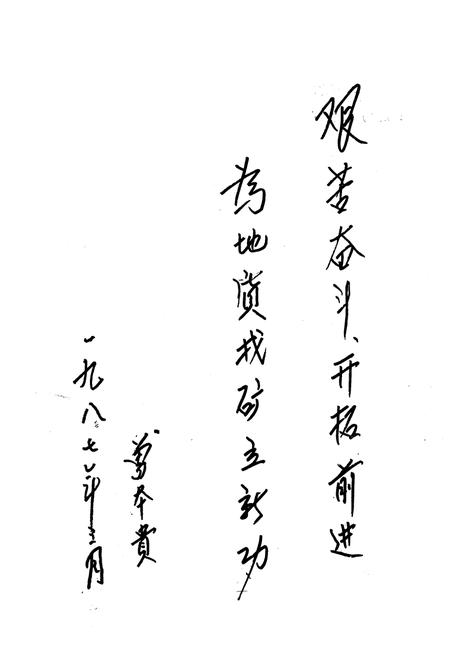 艰苦奋斗、开拓前进
為地質找矿立新功
本貴
一九八七年三月